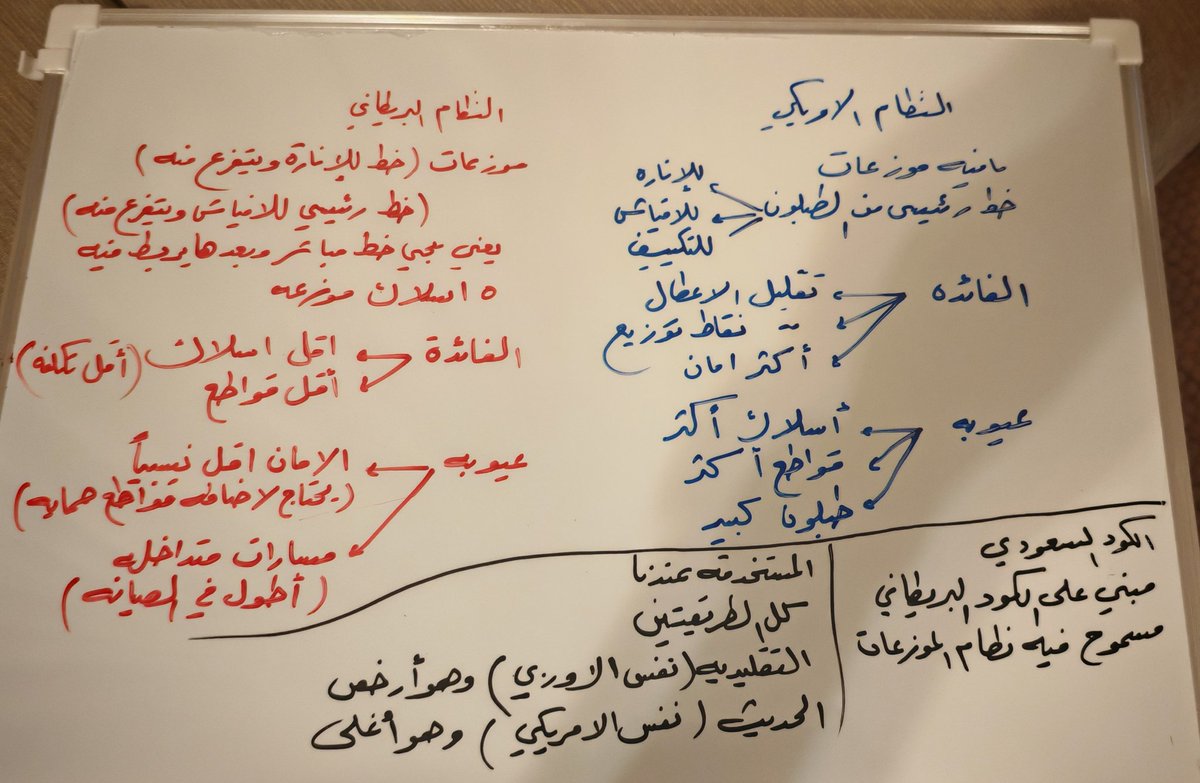 النظام الامريكي
مافيه موزعات
خط رئيسي من الطبلون
للإناره
للافياش
للتكييف
الفائده
تقليل الاعطال
نقاط توزيع
أكثر امان
عيوبه
أسلاك أكثر
قواطع أكثر
طبلون كبير
النظام البريطاني
موزعات (خط للإنارة ويتفرع منه)
(خط رئيسي للافياش ويتفرع منه)
يعني يجي خط مباشر وبعدها يربط فيه
٥ اسلاك موزعه
الفائدة
اقل اسلاك (أقل تكلفه)
أقل قواطع
عيوبه
الامان اقل نسبياً
(يحتاج لاضافه قواطع حمايه)
مسارات متداخله
(أطول في الصيانه)
الكود السعودي
مبني على الكود البريطاني
مسموح فيه نظام الموزعات
المستخدمه عندنا
كل الطريقتين
التقليديه (نفس الاوربي) وهو أرخص
الحديث (نفس الامريكي) وهو أغلى